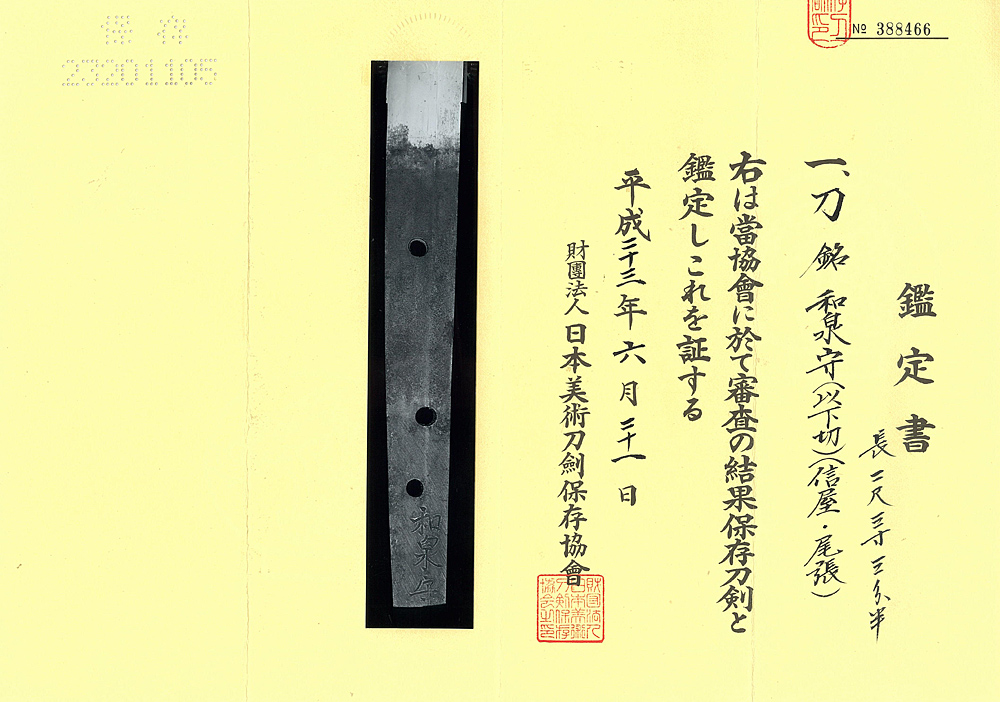 No 388466
鑑定書
長二尺三寸三分半
一、刀 銘 和泉守(以下切)(信屋・尾張)
右は當協會に於て審査の結果保存刀剣と
鑑定しこれを証する
平成二十三年六月二十一日
財團法人日本美術刀劍保存協會
和泉守
保存
23201105